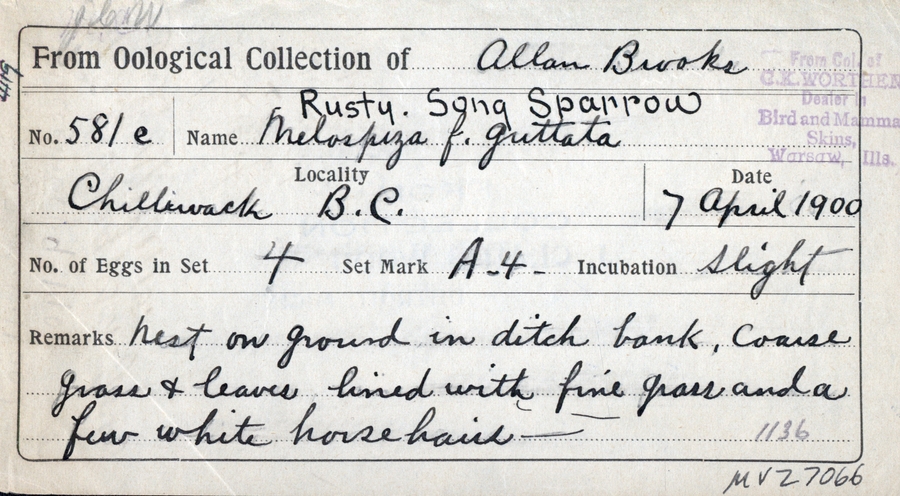 From Oological Collection of Allan Brooks
From Col. of
G.K. WORTHEN
Dealer in
Bird and Mamma
Skins,
Warsaw, Ills.
Rusty. Song Sparrow
No. 581 e Name Melospiza f. guttata
Locality Date
Chilliwack B.C. 7 April 1900
No. of Eggs in Set 4 Set Mark A-4- Incubation slight
Remarks nest on ground in ditch bank, coarse
grass & leaves lined with fine grass and a
few white horse hairs —
1136
MVZ 7066